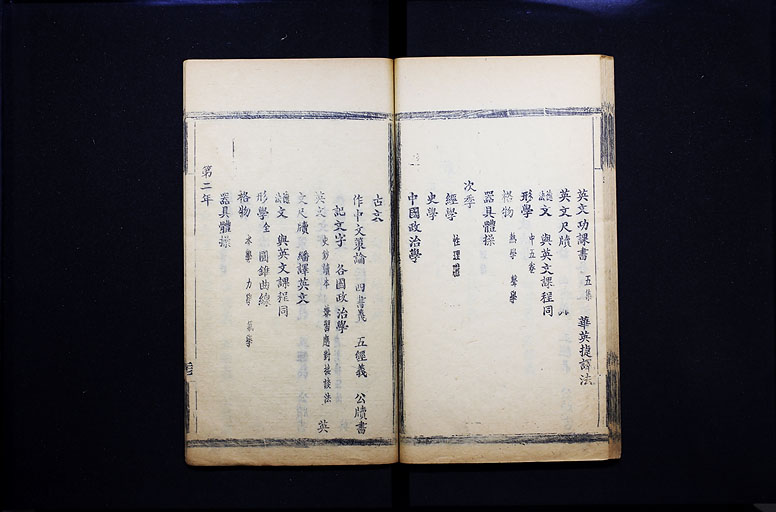 英文功課書 五集 華英捷譯法
英文尺牘
德法文 與英文課程同
形學 中五卷
格物 熱學 聲學
器具體操
次季
經學 性理
史學
中國政治學
古文
作中文策論 四書義 五經義 公牘書
記文字 各國政治學
英文 史鈔讀本 兼習應對接談法 英
文尺牘 繙譯英文
德法文 與英文課程同
形學全 圓錐曲線
格物 水學 力學 氣學
器具體操
第二年